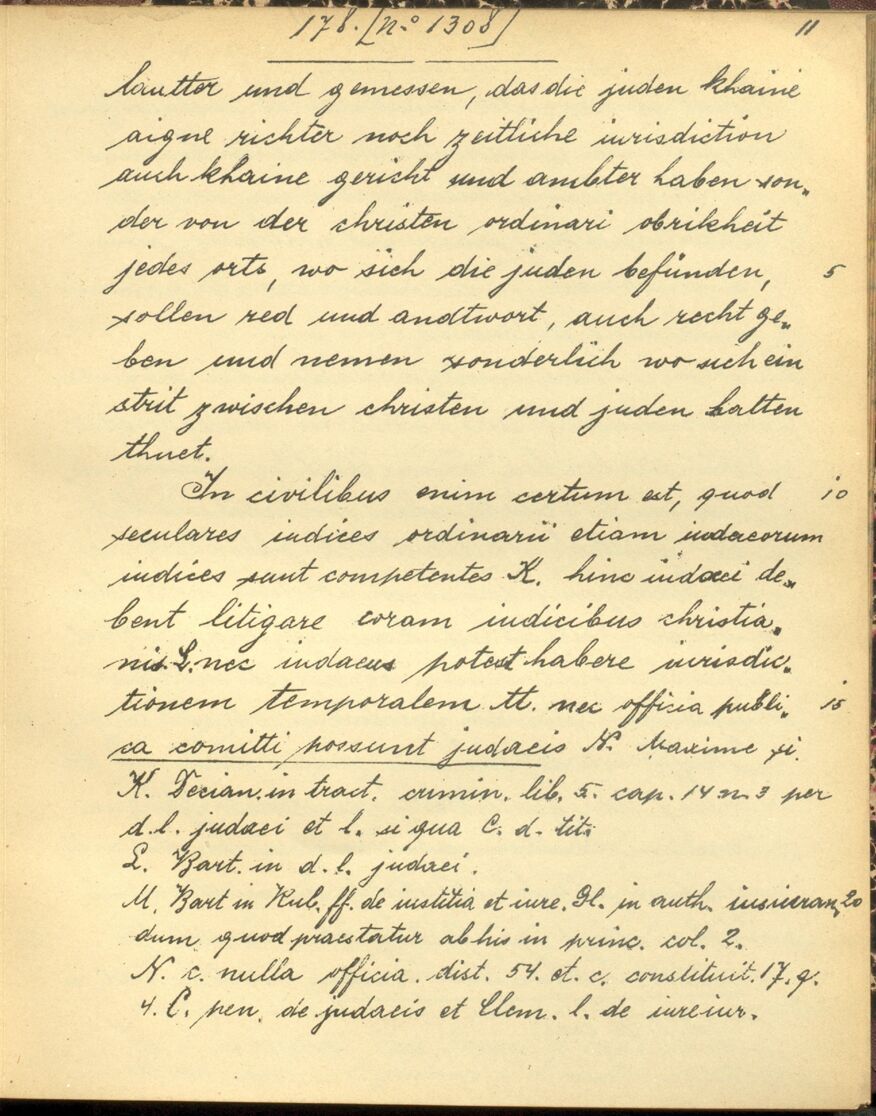 178. [No 1308]
11
lautter und gemessen, das die juden khaine
aigne richter noch zeitliche iurisdiction
auch khaine gericht und ambter haben son„
der von der christen ordinari obrikheit
jedes orts, wo sich die juden befünden, 5
sollen red und andtwort, auch recht ge„
ben und nemen sonderlich wo sich ein
strit zwischen christen und juden halten
thuet.
In civilibus enim certum est, quod 10
seculares iudices ordinarii etiam iudaeorum
iudices sunt competentes K. hinc iudaei de„
bent litigare coram iudicibus christia„
nis L. nec iudaeus potest habere iurisdic„
tionem temporalem M. nec officia publi„ 15
ca comitti possunt judaeis N. Maxime si.
K. Decian. in tract. crimin. lib. 5. cap. 14 n. 3 per
d. l. judaei et l. si qua C. d. tit.
L. Bart. in d. l. judaei.
M. Bart in Rub. ff. de iustitia et iure. Gl. in auth. iusiuran„ 20
dum quod praestatur ab his in princ. col. 2.
N. c. nulla officia. dist. 54. et. c. constituit. 17. q.
4. C. pen. de judaeis et Clem. l. de iureiur.